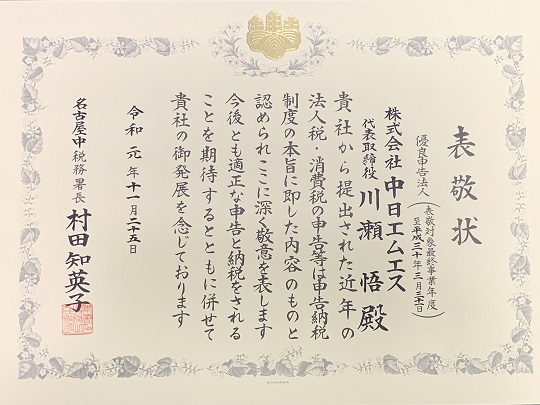 表敬状
優良申告法人
(表敬対象最終事業年度
至平成三十年三月三十一日)
株式会社 中日エムエス
代表取締役 川瀬 悟殿
貴社から提出された近年の
法人税・消費税の申告等は申告納税
制度の本旨に即した内容のものと
認められここに深く敬意を表します
今後とも適正な申告と納税をされる
ことを期待するとともに併せて
貴社の御発展を念じております
令和元年十一月二十五日
名古屋中税務署長 村田知英子